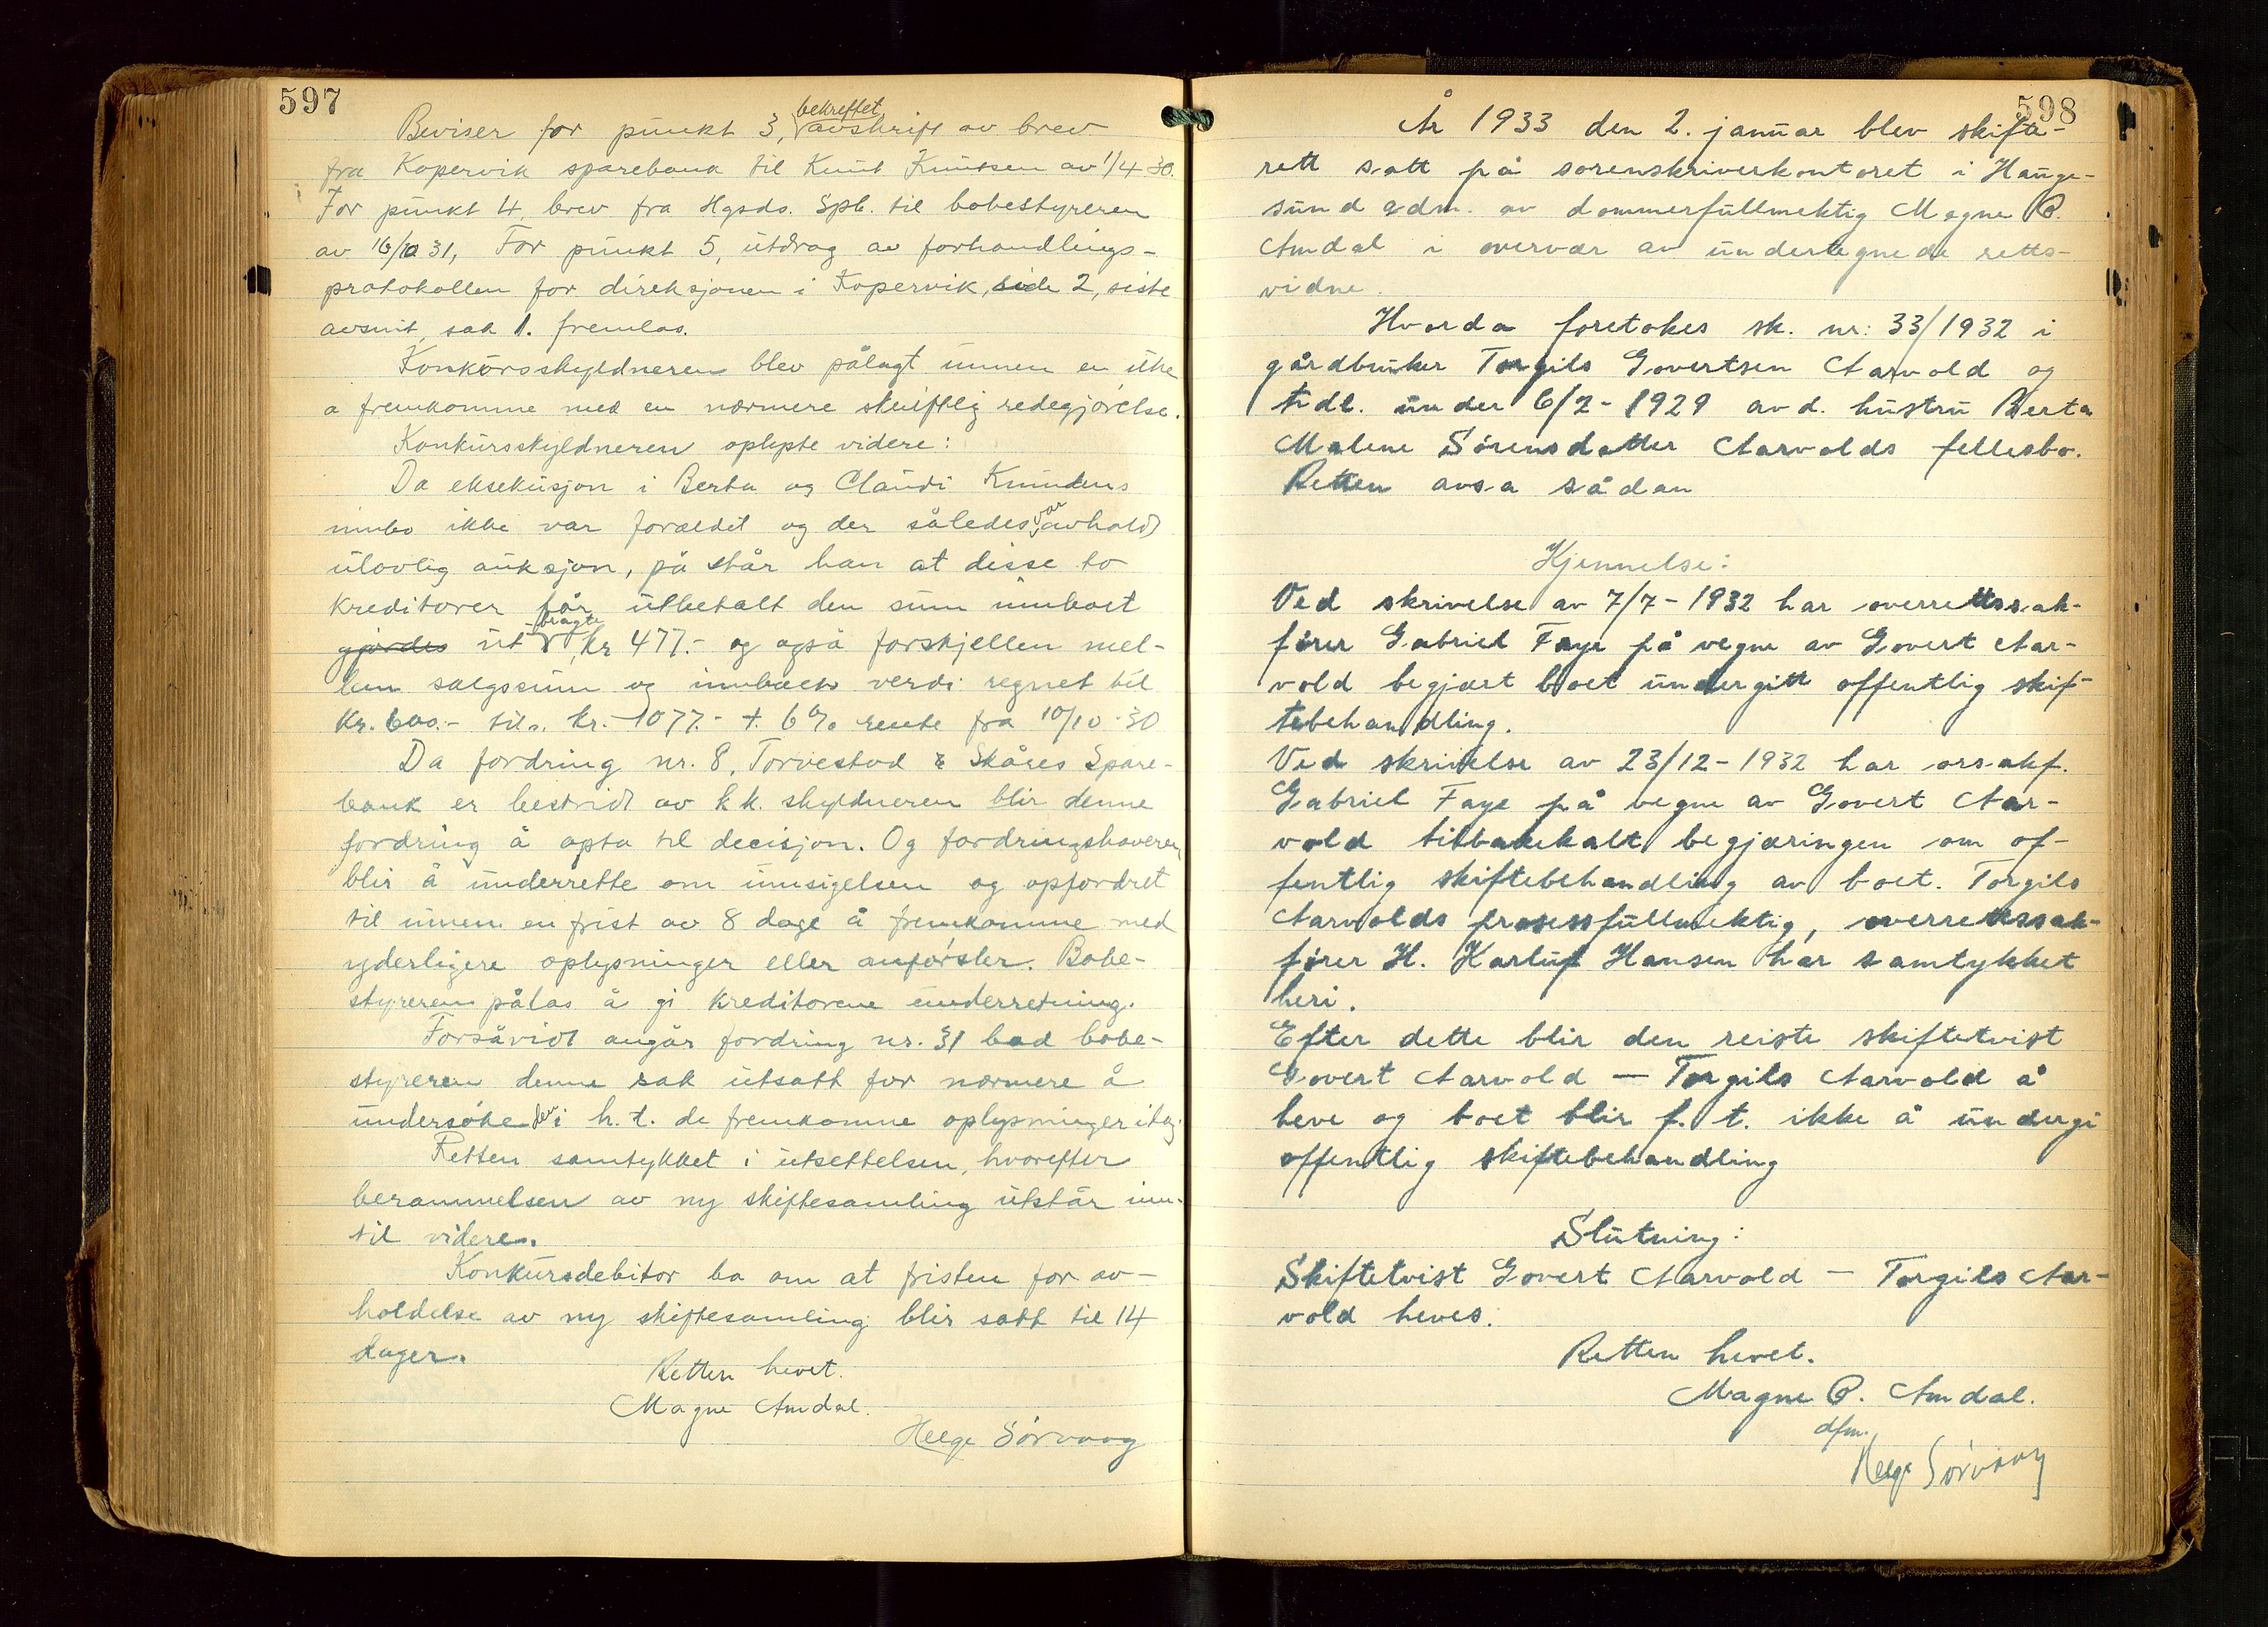 597
Beviser for punkt 3, bekreftet avskrift av brev
fra Kopervik sparebank til Knut Knutsen av 1/4 30.
For punkt 4, brev fra Hgsds. Spb. til bobestyreren
av 16/10 31, For punkt 5, utdrag av forhandlings-
protokollen for direksjonen i Kopervik, side 2, siste
avsnit, sak 1. fremlas.
Konkursskyldneren blev pålagt innen en uke
a fremkomme med en nærmere skriftlig redegjørelse.
Konkursskyldneren oplyste videre:
Da eksekusjon i Berta og Claudi Knudsens
innbo ikke var foreldet og der således var avholdt
ulovlig auksjon, på står han at disse to
kreditorer får utbetalt den sum innboet
gjordes ut bragte, kr 477.- og også forskjellen mel-
lem salgssum og innboets verdi regnet til
Kr. 600.- tils. kr. 1077.- + 6% rente fra 10/10-30
Da fordring nr. 8, Torvestad & Skåres Spare-
bank er bestridt av kk. skyldneren blir denne
fordring å opta til decisjon. Og fordringshaveren
blir å underrette om innsigelsen og opfordret
til innen en frist av 8 dage å fremkomme med
yderligere oplysninger eller anførsler. Bobe-
styreren pålas å gi kreditorene underretning.
Forsåvidt angår fordring nr. 31 bad bobe-
styreren denne sak utsatt for nærmere å
undersøke i h. t. de fremkomne oplysninger idag.
Retten samtykket i utsettelsen, hvorefter
berammelsen av ny skiftesamling utstår inn-
til videre.
Konkursdebitor ba om at fristen for av-
holdelse av ny skiftesamling blir satt til 14
dager.
Retten hevet.
Magne Amdal.
Helge Sörvaag
598
År 1933 den 2. januar blev skifte-
rett satt på sorenskriverkontoret i Hauge-
sund adm. av dommerfullmektig Magne P.
Amdal i overvær av undertegnede retts-
vidne.
Hvorda foretokes sk. nr: 33/1932 i
gårdbruker Torgils Govertsen Aarvold og
tidl. under 6/2-1929 avd. hustru Berta
Malene Sörensdatter Aarvolds fellesbo.
Retten avsa sådan
Kjennelse:
Ved skrivelse av 7/7-1932 har overrettssak-
fører Gabriel Faye på vegne av Govert Aar-
vold begjært boet undergitt offentlig skif-
tebehandling.
Ved skrivelse av 23/12-1932 har orsakf.
Gabriel Faye på vegne av Govert Aar-
vold tilbakekalt begjæringen om of-
fentlig skiftebehandling av boet. Torgils
Aarvolds prosessfullmektig, overrettssak-
fører H. Karluf Hansen har samtykket
heri.
Efter dette blir den reiste skiftetvist
Govert Aarvold — Torgils Aarvold å
heve og boet blir f. t. ikke å undergi
offentlig skiftebehandling
Slutning:
Skiftetvist Govert Aarvold — Torgils Aar-
vold heves.
Retten hevet.
Magne P. Amdal.
dfm.
Helge Sörvaag